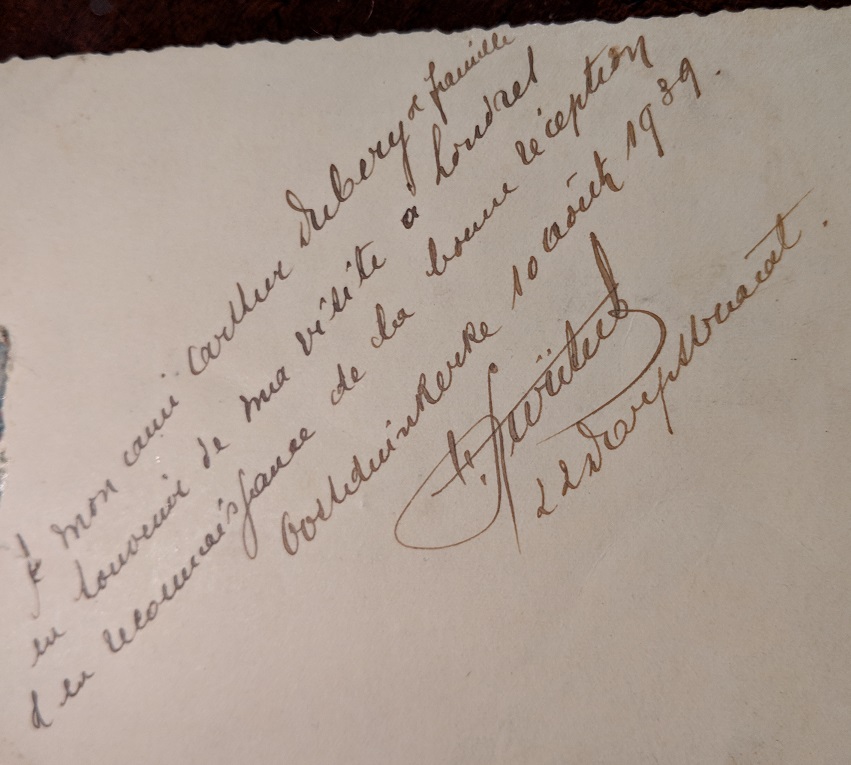 A mon ami Arthur Dubery & famille
en souvenir de ma visite à Londres
& en reconnaissance de la bonne réception
Oostduinkerke 10 août 1939.
22 Dorpstraat.